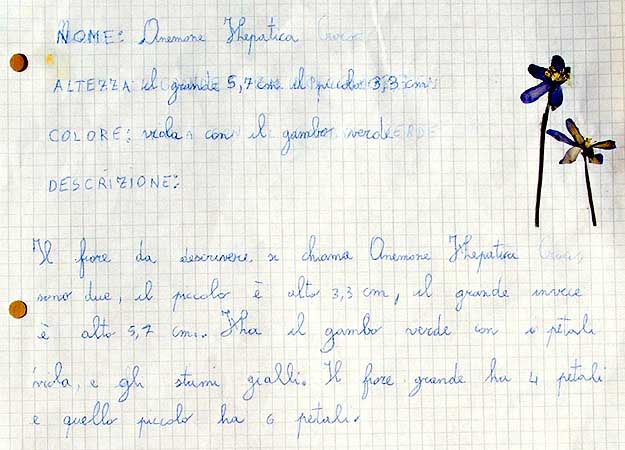 NOME: Anemone Hepatica Croco
ALTEZZA: il grande 5,7 cm il piccolo 3,3 cm
COLORE: viola con il gambo verde
DESCRIZIONE:
Il fiore da descrivere si chiama Anemone Hepatica
sono due, il piccolo è alto 3,3 cm, il grande invece
è alto 5,7 cm. Ha il gambo verde con i petali
viola, e gli stami gialli. Il fiore grande ha 4 petali
e quello piccolo ha 6 petali.